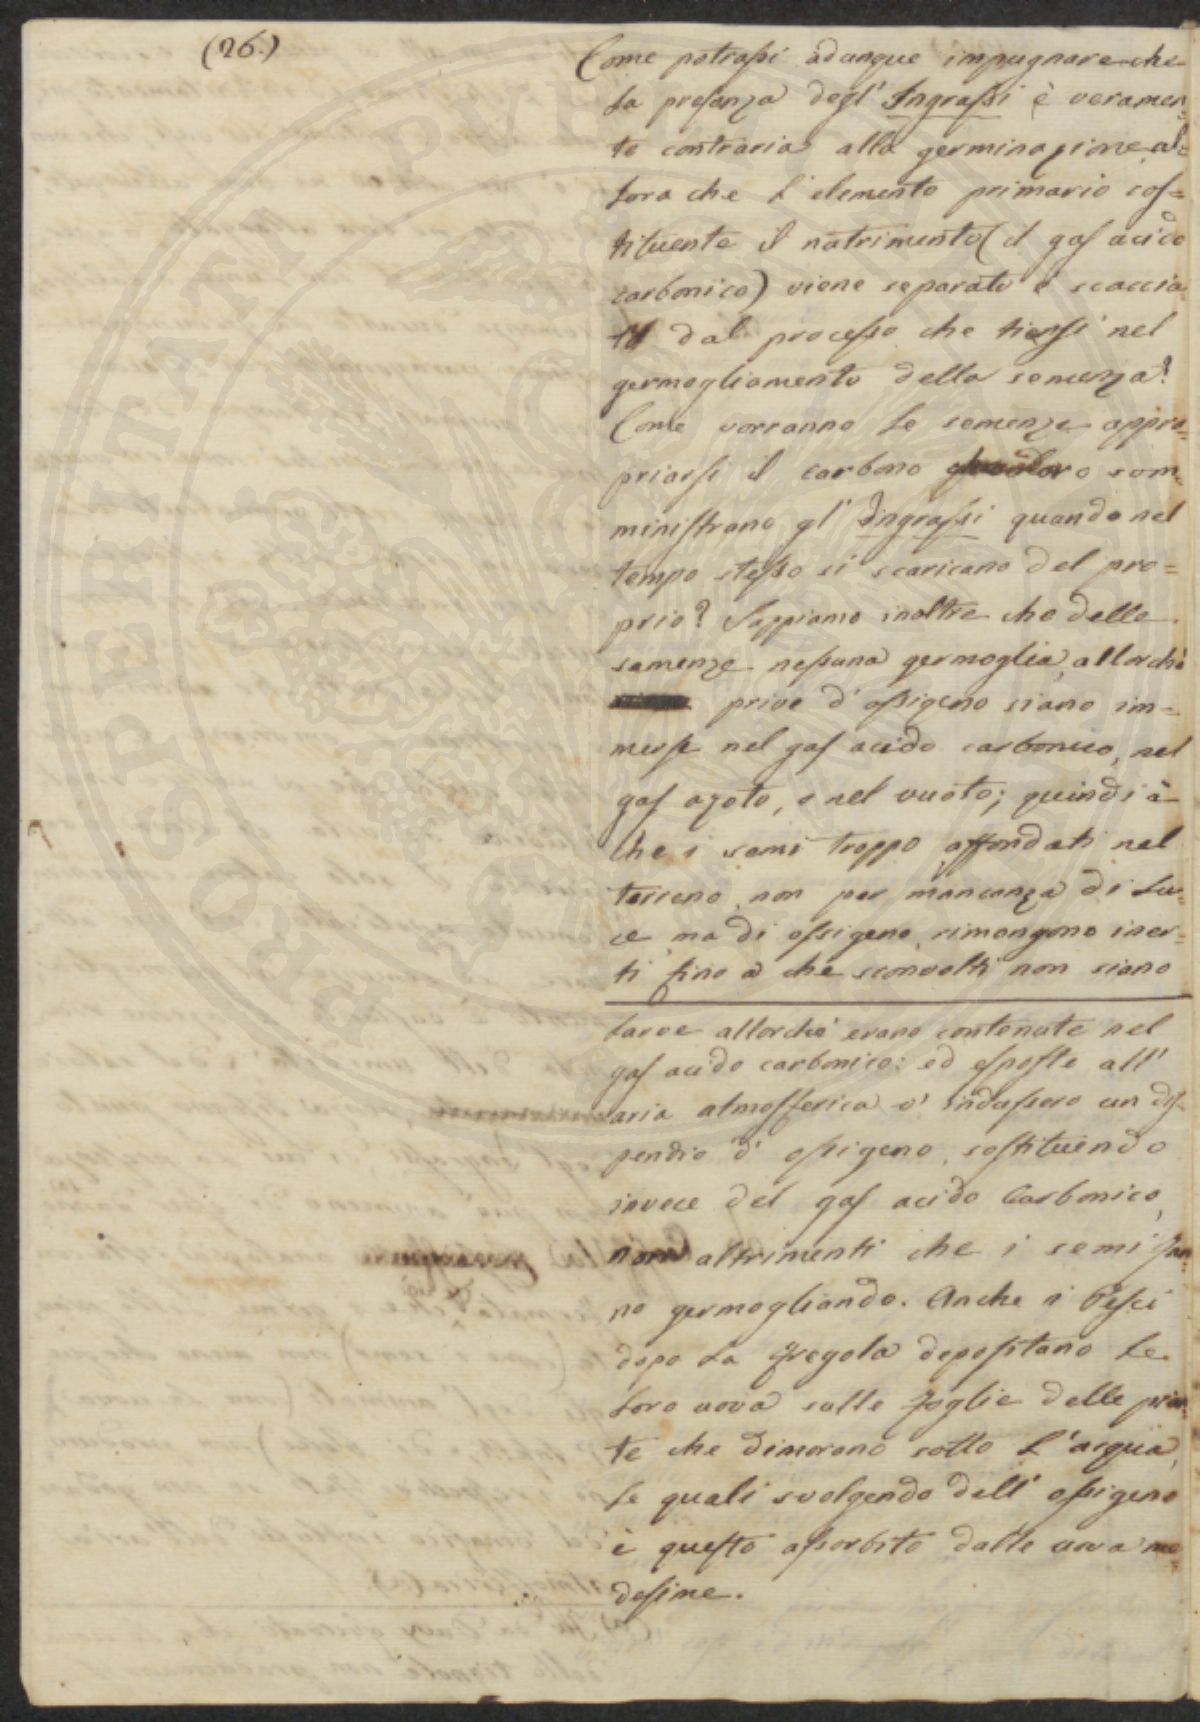 (26.)
Come potrassi adunque impugnare che
la presenza degl' Ingrassi è veramen=
te contraria alla germinazione al=
lora che l' elemento primario cos=
tituente il nutrimento (il gas acido
carbonico) viene separato e scaccia=
to dal processo che tiensi nel
germogliamento della semenza?
Come vorranno le semenze appro=
priarsi il carbono som=
ministrano gl' Ingrassi quando nel
tempo stesso si scaricano del pro=
prio? Sappiamo inoltre che delle
semenze nessuna germoglia, allorchè
prive d' ossigeno siano im=
merse nel gas acido carbonico, nel
gas azoto, o nel vuoto; quindi è
che i semi troppo affondati nel
terreno, non per mancanza di lu=
ce ma di ossigeno, rimangono iner=
ti fino a che sconvolti non siano
larve allorchè erano contenute nel
gas acido carbonico: ed esposte all'
aria atmosferica v' indussero un dis=
pendio d' ossigeno, sostituendo
invece del gas acido Carbonico,
non altrimenti che i semi fan=
no germogliando. Anche i Pesci
dopo la fregola depositano le
loro uova sulle foglie delle pian=
te che dimorano sotto l' acqua,
le quali svolgendo dell' ossigeno
è questo assorbito dalle uova me=
desime.